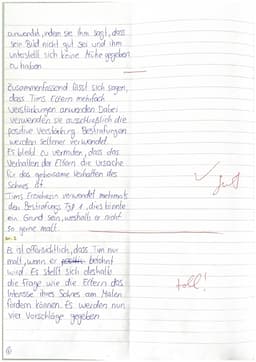 anwendet, indem sie ihm sagt, dass
sein Bild nicht gut sei und ihm
unterstellt sich keine Mühe gegeben
zu haben.
Zusammenfassend lässt sich sagen,
dass Tims Eltern mehrfach
Verstärkungen anwenden. Dabei
verwenden sie ausschließlich die
positive Verstärkung. Bestrafungen
werden seltener verwendet.
Es bleibt zu vermuten, dass das
Verhalten der Eltern die Ursache
für das gehorsame Verhalten des
Sohnes ist.
Tims Erzieherin verwendet mehrmals
den Bestrafungs Typ 1, dies könnte
ein Grund sein, weshalb er nicht
so gerne malt.
Es ist offensichtlich, dass Tim nur
malt, wenn er belohnt
wird. Es stellt sich deshalb
die Frage wie die Eltern das
Interesse ihres Sohnes am Malen
fördern können. Es werden nun
vier Vorschläge gegeben.
toll!